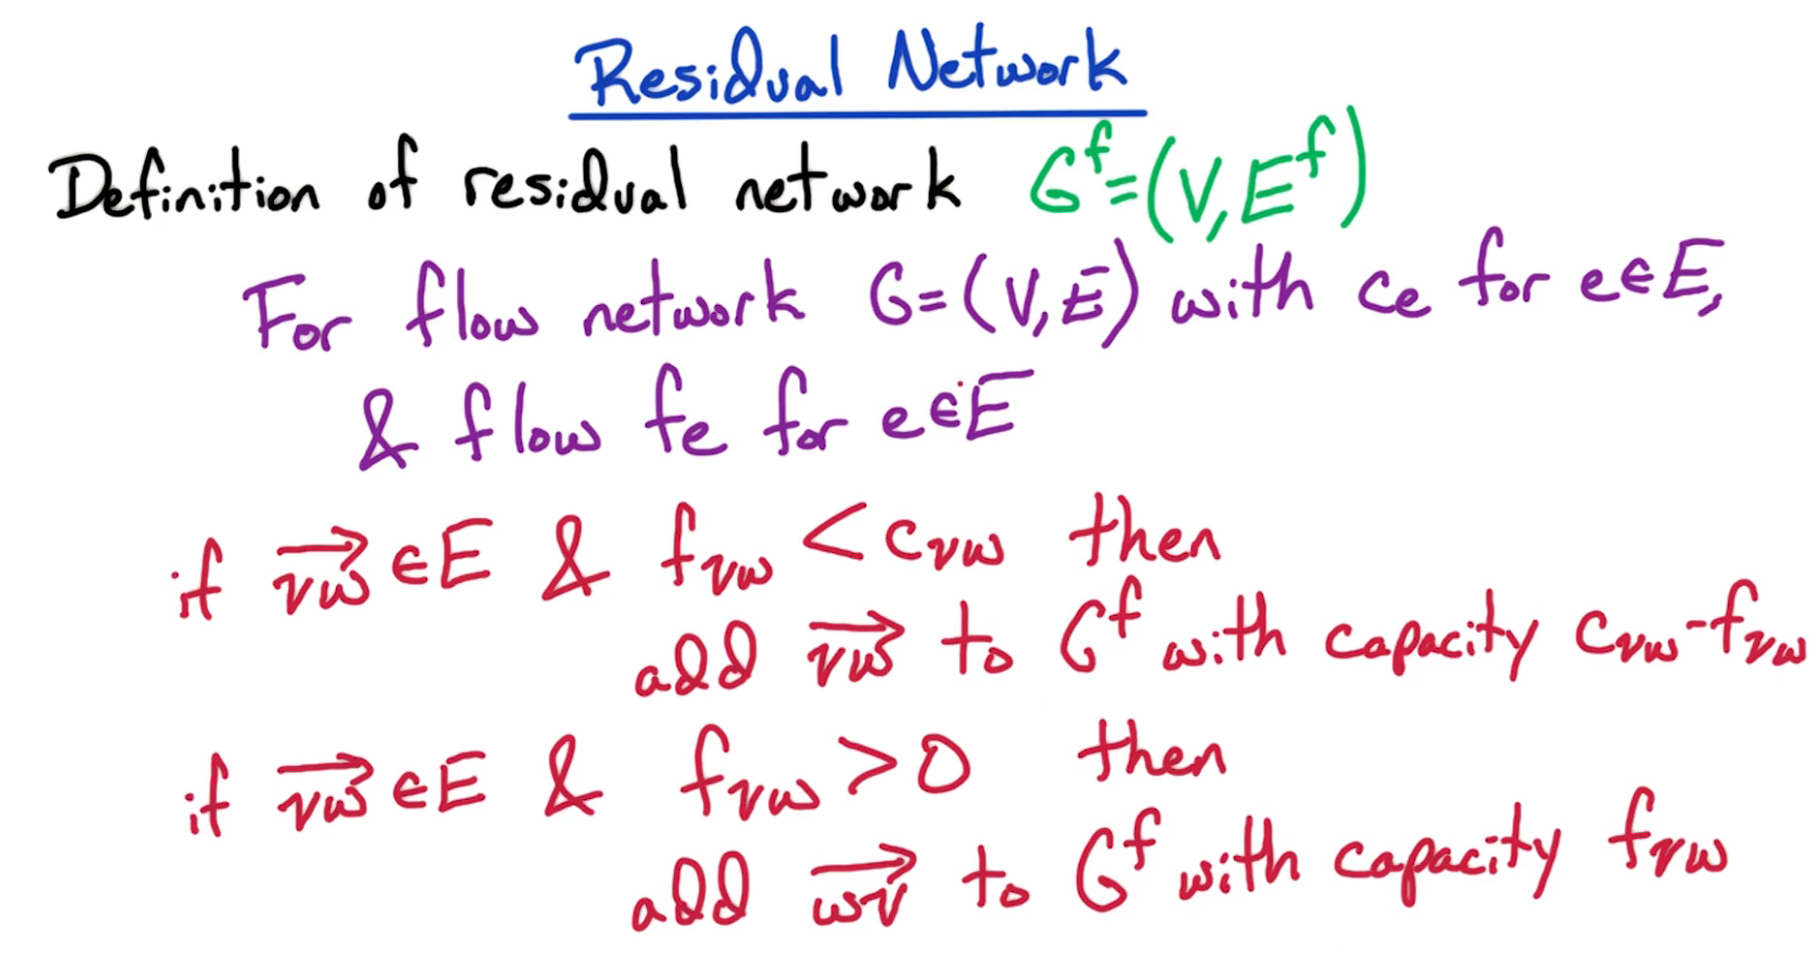 Residual Network
Definition of residual network G^f=(V,E^f)
For flow network G=(V,E) with ce for e∈E,
& flow fe for e∈E
if \overrightarrow{vw}∈E & f_{vw} < c_{vw} then
add \overrightarrow{vw} to G^f with capacity c_{vw}-f_{vw}
if \overrightarrow{vw}∈E & f_{vw} > 0 then
add \overrightarrow{wv} to G^f with capacity f_{vw}